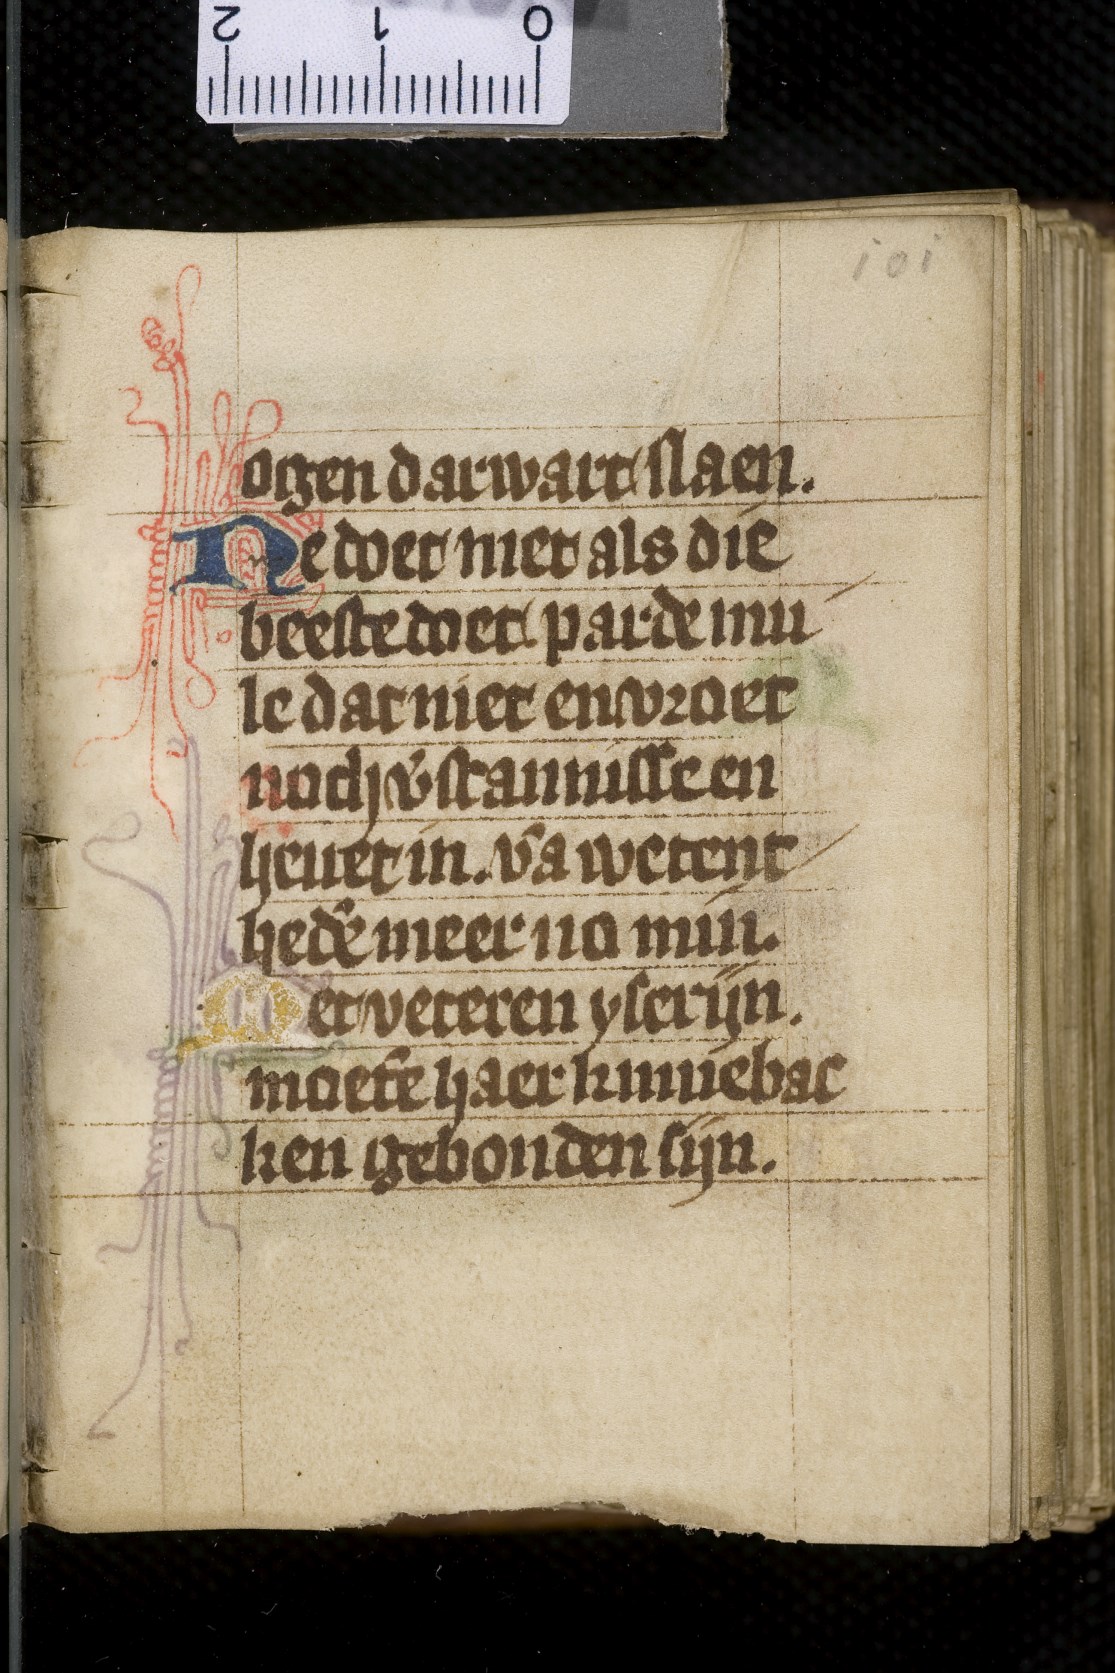 2 1 0
101
ogen darwart slaen.
Ne doet niet als die
beeste doet parde mu
le dat niet en vroet
noch v̾stannisse en
heuet in. v̾a wetent
hed̾e meer no min.
Met veteren yserijn.
moetē haer kinnebac
ken gebonden sijn.